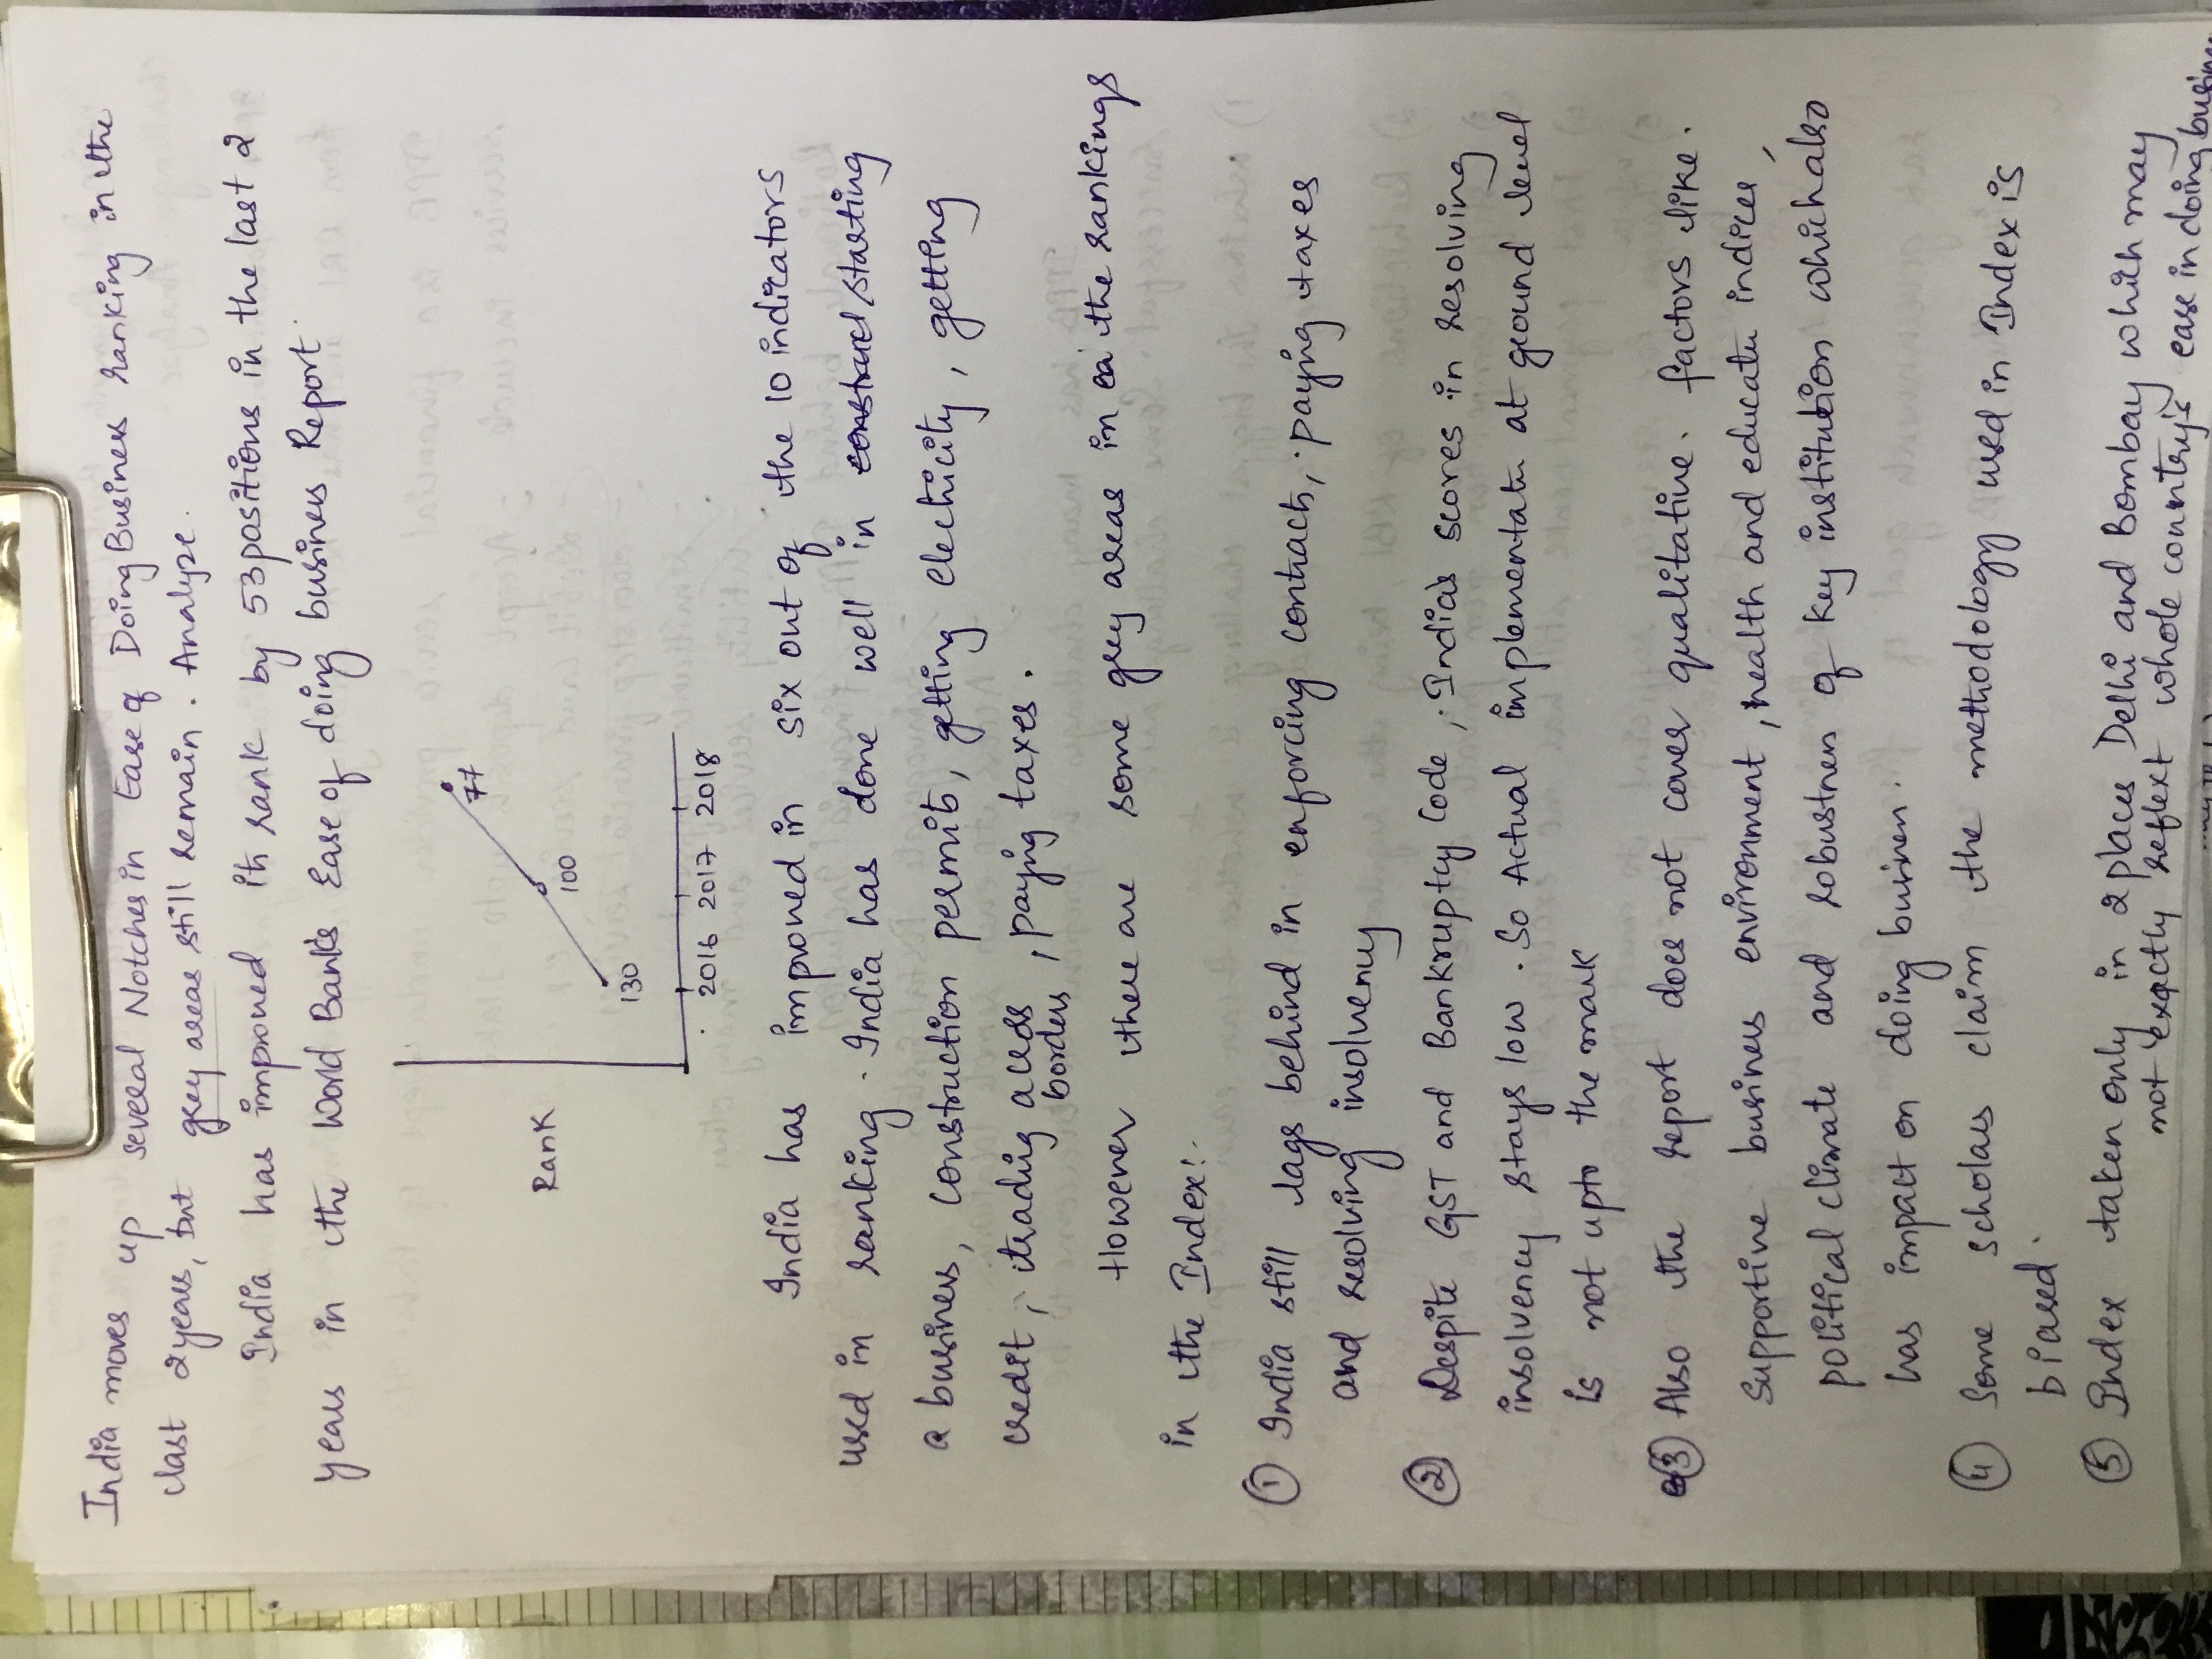 India moves up several Notches in Ease of Doing Business ranking in the
last 2 years, but grey areas still remain. Analyze.
India has improved its rank by 53 positions in the last 2
years in the World Bank's Ease of doing business Report.
Rank
130
100
77
2016 2017 2018
India has improved in six out of the 10 indicators
used in ranking. India has done well in starting
a business, construction permits, getting electricity, getting
credit, trading across
borders, paying taxes.
However there are some grey areas in the rankings
in the Index:
① India still lags behind in enforcing contracts, paying taxes
and resolving insolvency
② Despite GST and Bankruptcy Code, India's scores in resolving
insolvency stays low. So Actual implementatn at ground level
is not upto the mark
③ Also the report does not cover qualitative factors like.
Supportive business environment, health and educatn indices,
political climate and robustness of key institution which also
has impact on doing business.
④ Some scholars claim the methodology used in Index is
biased.
⑤ Index taken only in 2 places Delhi and Bombay which may
not exactly reflext whole country's ease in doing business